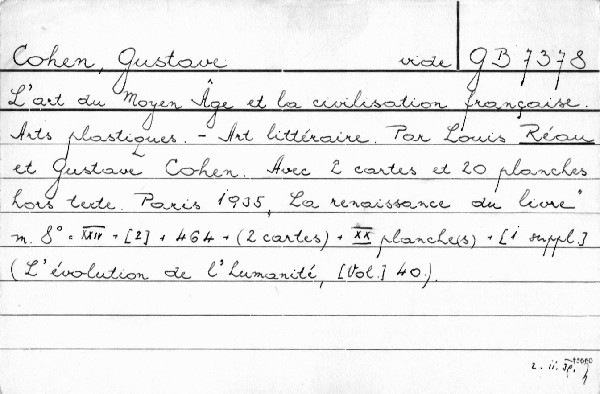 Cohen, Gustave vide GB 7378
L'art du Moyen Âge et la civilisation française.
Arts plastiques. – Art littéraire. Par Louis Réau
et Gustave Cohen. Avec 2 cartes et 20 planches
hors texte. Paris 1935, La renaissance du livre"
m. 8° = XXIV + [2] + 464 + (2 cartes) + XX planche(s) + [1 suppl.]
(L'évolution de l'humanité, [Vol.] 40.).
2. II. 39.